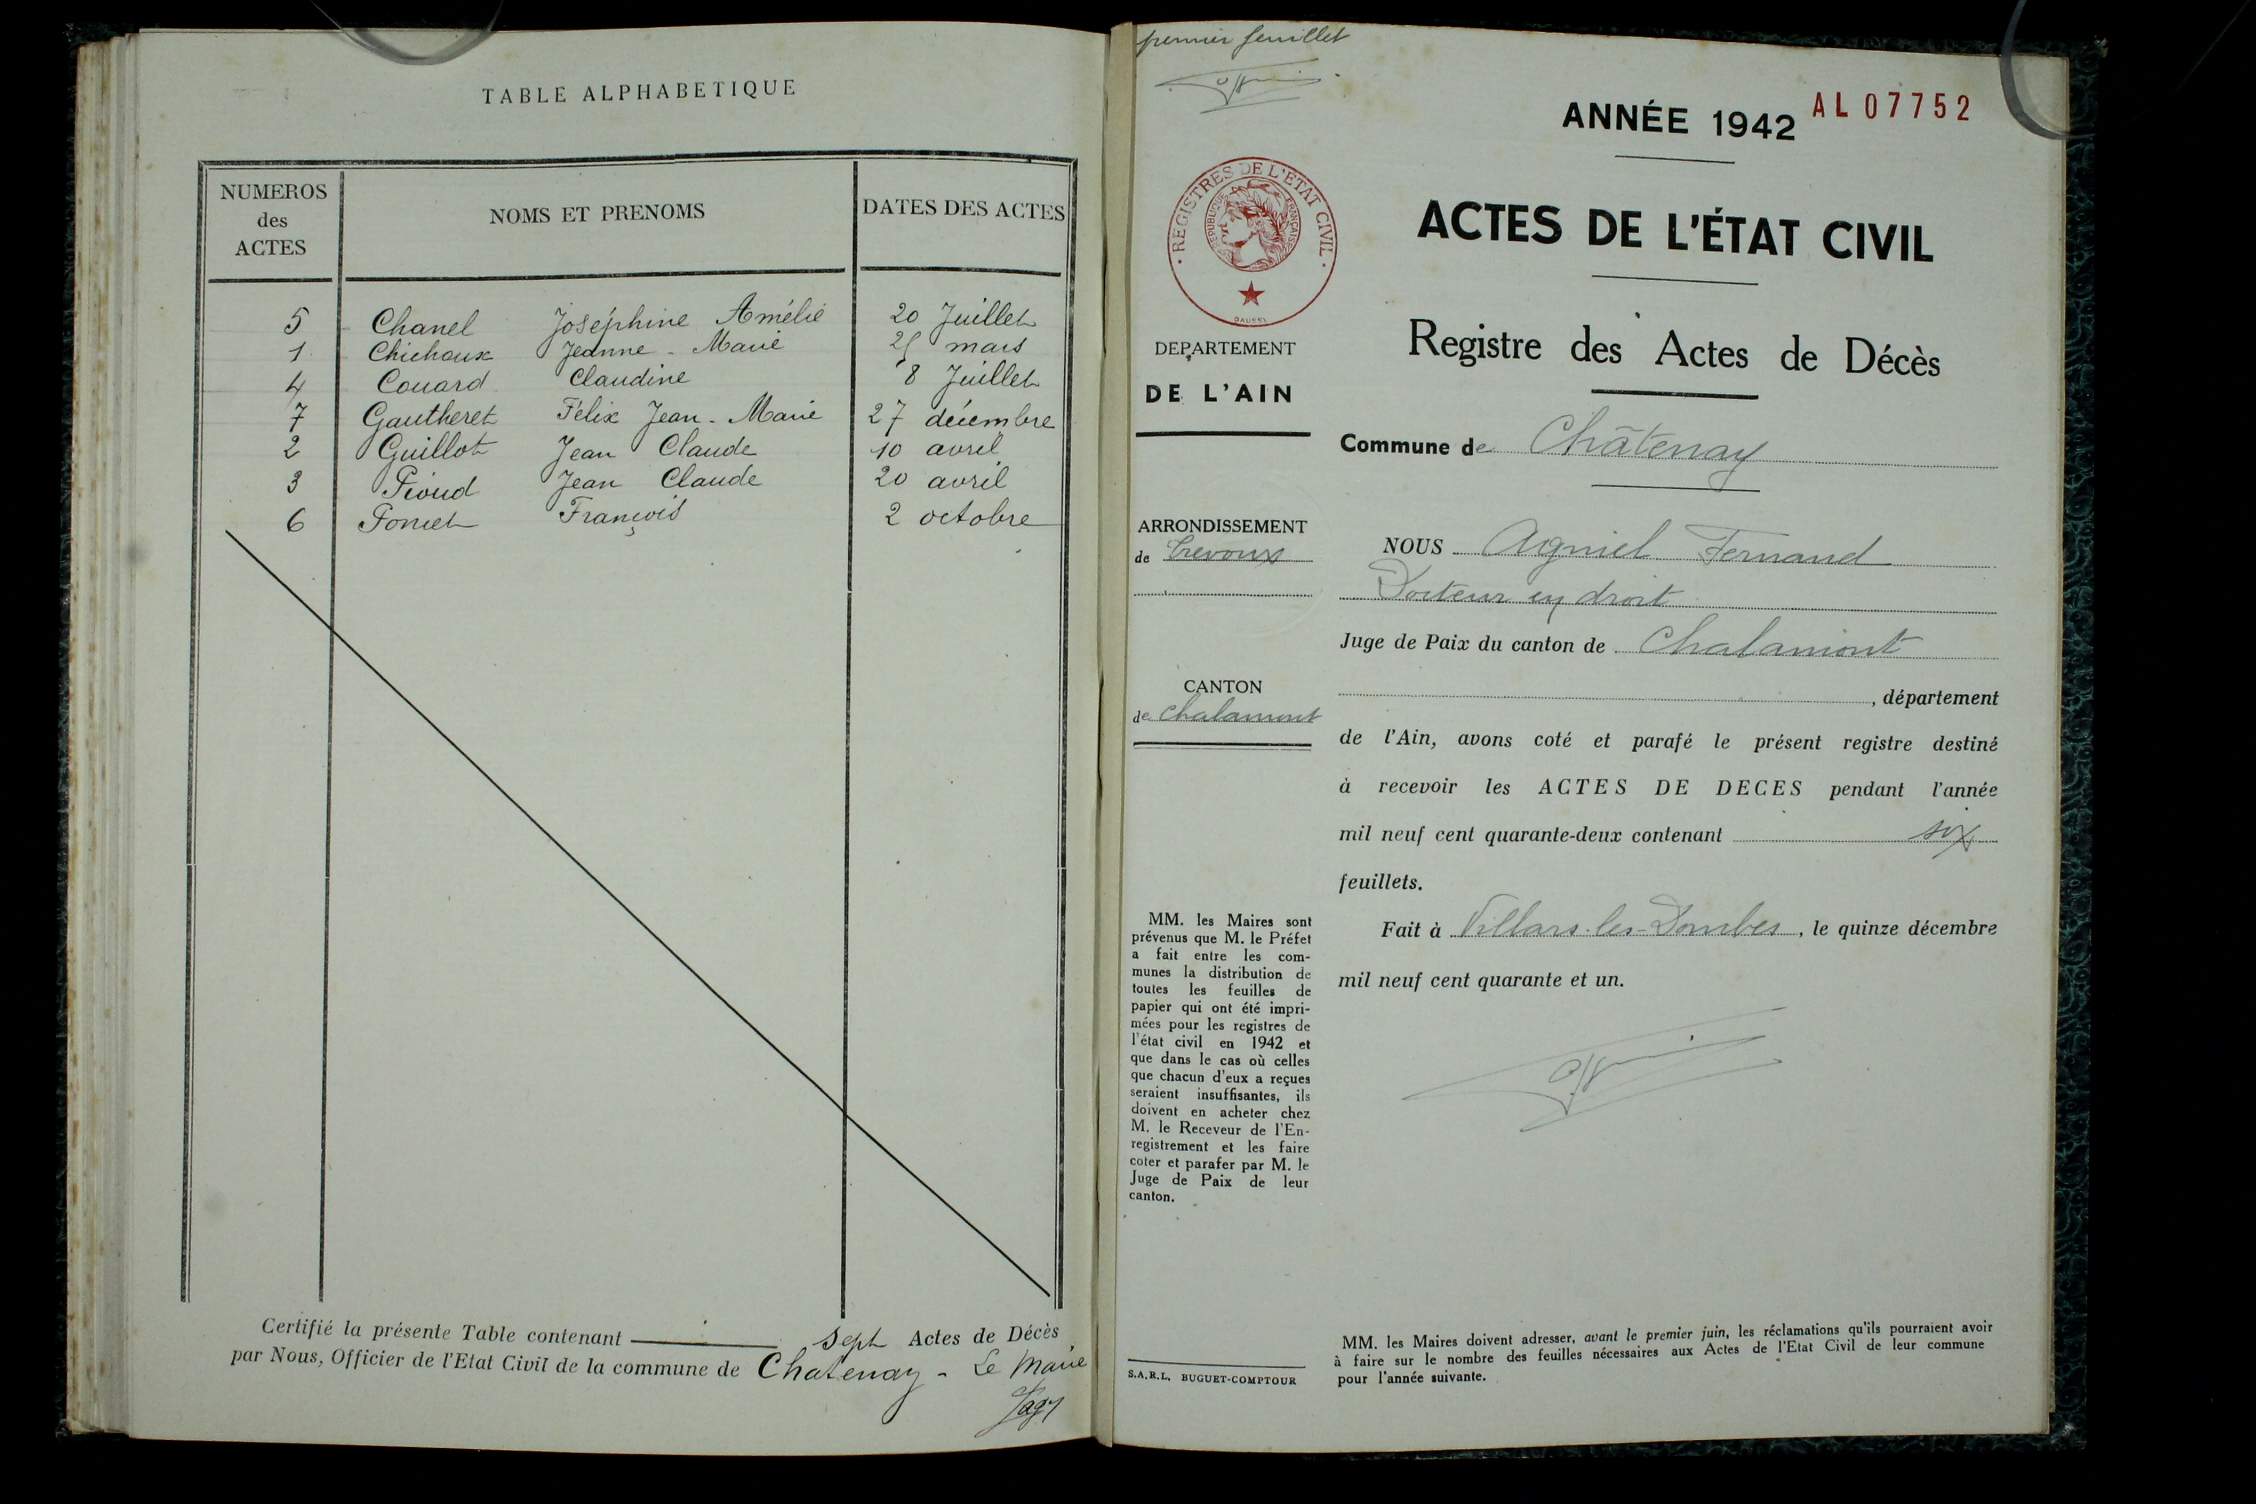 TABLE ALPHABETIQUE
NUMEROS des ACTES
NOMS ET PRENOMS
DATES DES ACTES
5 Chanel Joséphine Amélie 20 Juillet
1 Chichoux Jeanne - Marie 25 mars
4 Couard Claudine 8 Juillet
7 Gautheret Félix Jean - Marie 27 décembre
2 Guillot Jean Claude 10 avril
3 Pioud Jean Claude 20 avril
6 Poncet François 2 octobre
Certifié la présente Table contenant sept Actes de Décès
par Nous, Officier de l'Etat Civil de la commune de Chatenay - Le Maire
premier feuillet
ANNÉE 1942
AL07752
REGISTRES DE L'ETAT CIVIL
REPUBLIQUE FRANÇAISE
DEPARTEMENT
DE L'AIN
ARRONDISSEMENT
de Trevoux
CANTON
de Chalamont
MM. les Maires sont
prévenus que M. le Préfet
a fait entre les com-
munes la distribution de
toutes les feuilles de
papier qui ont été impri-
mées pour les registres de
l'état civil en 1942 et
que dans le cas où celles
que chacun d'eux a reçues
seraient insuffisantes, ils
doivent en acheter chez
M. le Receveur de l'En-
registrement et les faire
coter et parafer par M. le
Juge de Paix de leur
canton.
S.A.R.L. BUGUET-COMPTOUR
ACTES DE L'ÉTAT CIVIL
Registre des Actes de Décès
Commune de Châtenay
NOUS Agniel Fernand
Docteur en droit
Juge de Paix du canton de Chalamont
, département
de l'Ain, avons coté et parafé le présent registre destiné
à recevoir les ACTES DE DECES pendant l'année
mil neuf cent quarante-deux contenant six
feuillets.
Fait à Villars-les-Dombes, le quinze décembre
mil neuf cent quarante et un.
MM. les Maires doivent adresser, avant le premier juin, les réclamations qu'ils pourraient avoir
à faire sur le nombre des feuilles nécessaires aux Actes de l'Etat Civil de leur commune
pour l'année suivante.